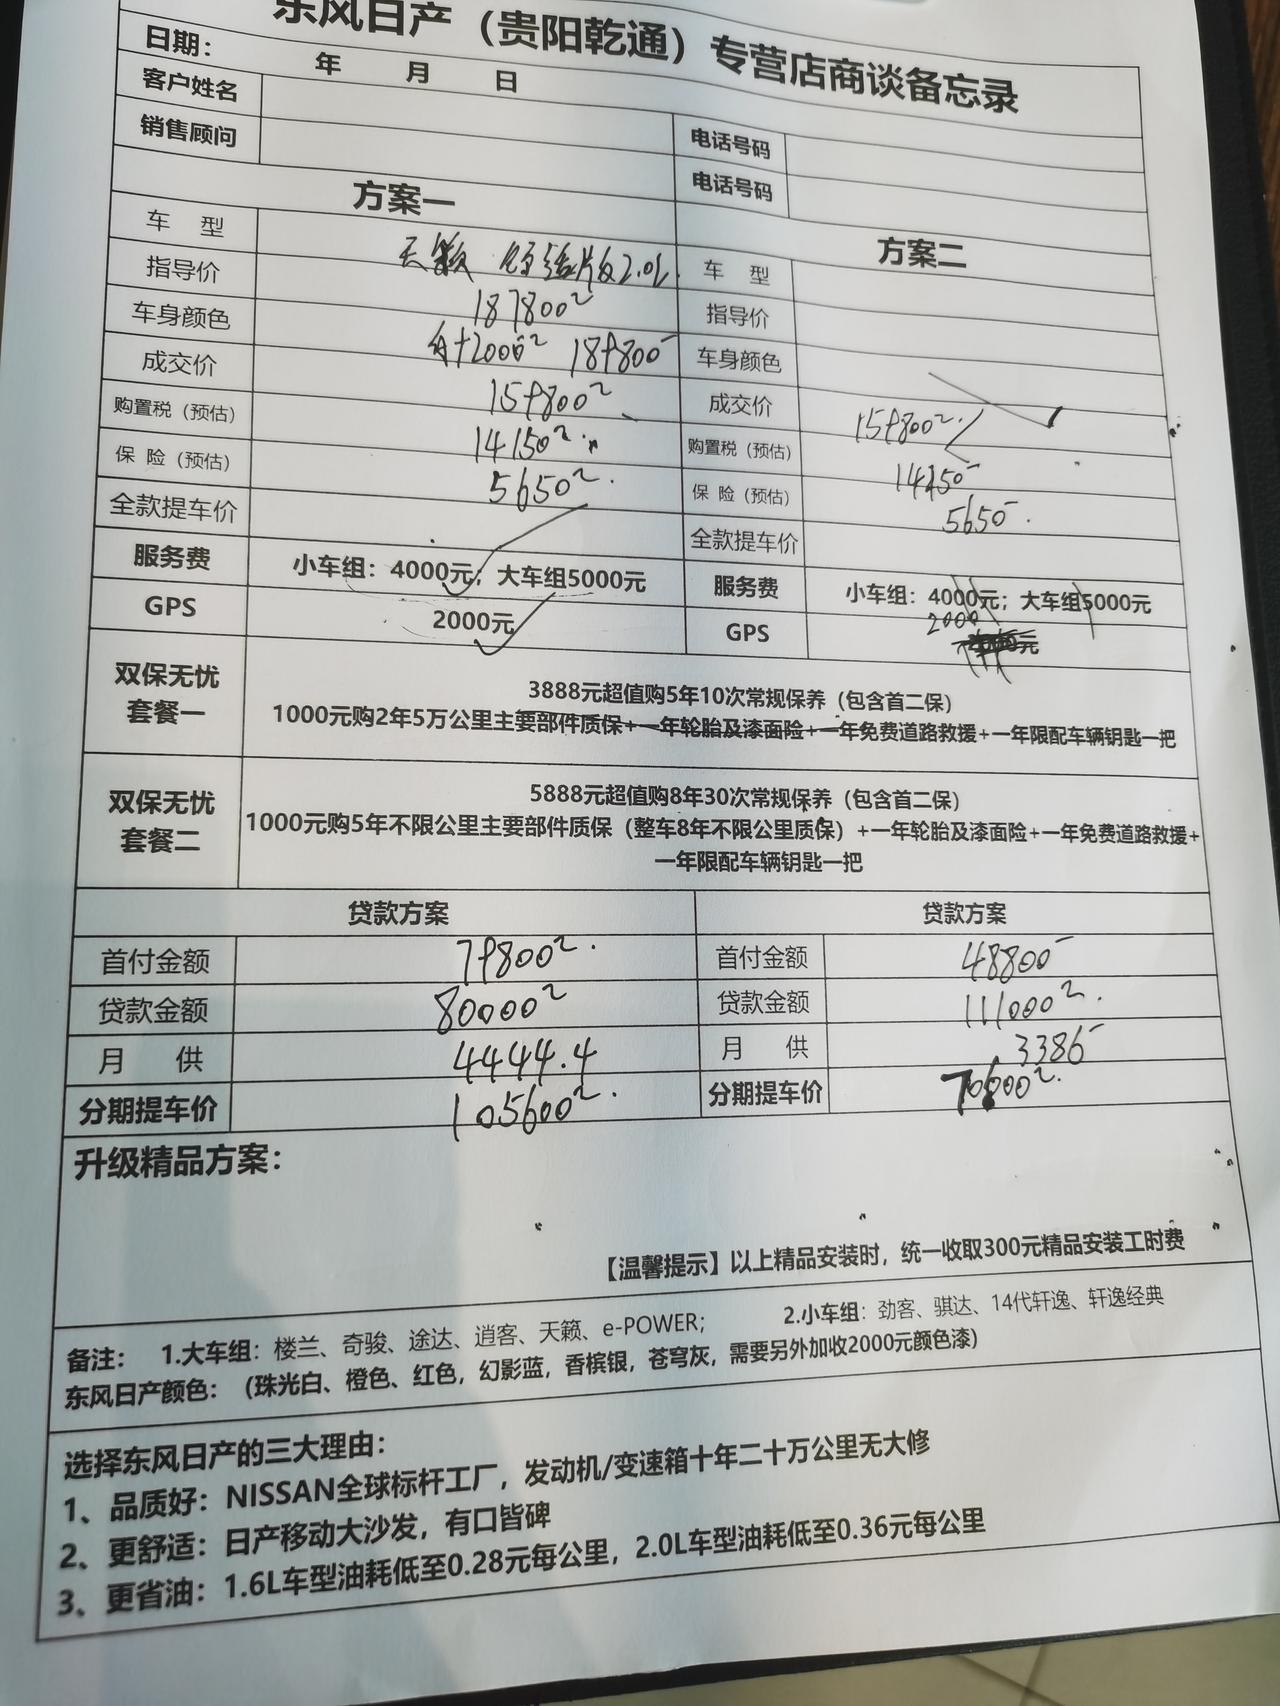 东风日产（贵阳乾通）专营店商谈备忘录
日期： 年 月 日
客户姓名
电话号码
销售顾问
电话号码
方案一
方案二
车 型 天籁 2.0L
车 型
指导价 187800
指导价
车身颜色 +2000 189800
车身颜色
成交价 159800
成交价 159800
购置税（预估） 14150
购置税（预估） 14150
保 险（预估） 5650
保 险（预估） 5650
全款提车价
全款提车价
服务费 小车组：4000元；大车组5000元
服务费 小车组：4000元；大车组5000元
GPS 2000元
GPS 2000
双保无忧
套餐一
3888元超值购5年10次常规保养（包含首二保）
1000元购2年5万公里主要部件质保+一年轮胎及漆面险+一年免费道路救援+一年限配车辆钥匙一把
双保无忧
套餐二
5888元超值购8年30次常规保养（包含首二保）
1000元购5年不限公里主要部件质保（整车8年不限公里质保）+一年轮胎及漆面险+一年免费道路救援+
一年限配车辆钥匙一把
贷款方案
贷款方案
首付金额 79800
首付金额 48800
贷款金额 80000
贷款金额 111000
月 供 4444.4
月 供 3386
分期提车价 105600
分期提车价
升级精品方案：
【温馨提示】以上精品安装时，统一收取300元精品安装工时费
备注： 1.大车组：楼兰、奇骏、途达、逍客、天籁、e-POWER； 2.小车组：劲客、骐达、14代轩逸、轩逸经典
东风日产颜色：（珠光白、橙色、红色，幻影蓝，香槟银，苍穹灰，需要另外加收2000元颜色漆）
选择东风日产的三大理由：
1、品质好：NISSAN全球标杆工厂，发动机/变速箱十年二十万公里无大修
2、更舒适：日产移动大沙发，有口皆碑
3、更省油：1.6L车型油耗低至0.28元每公里，2.0L车型油耗低至0.36元每公里